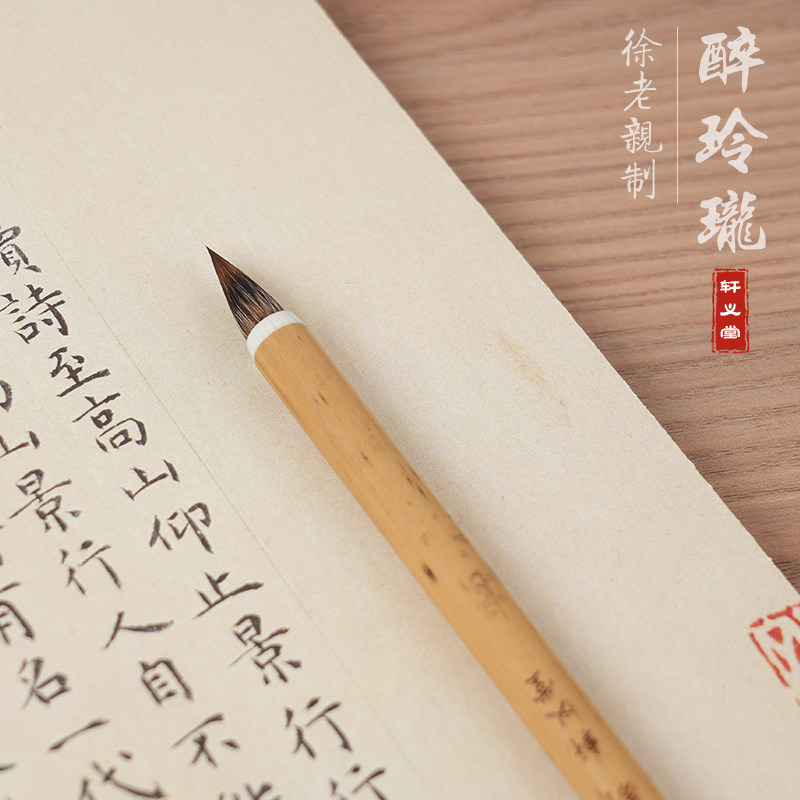 醉玲瓏
徐老親制
轩义堂
詩至高山仰止景行行
山景行人自不能
有名一代